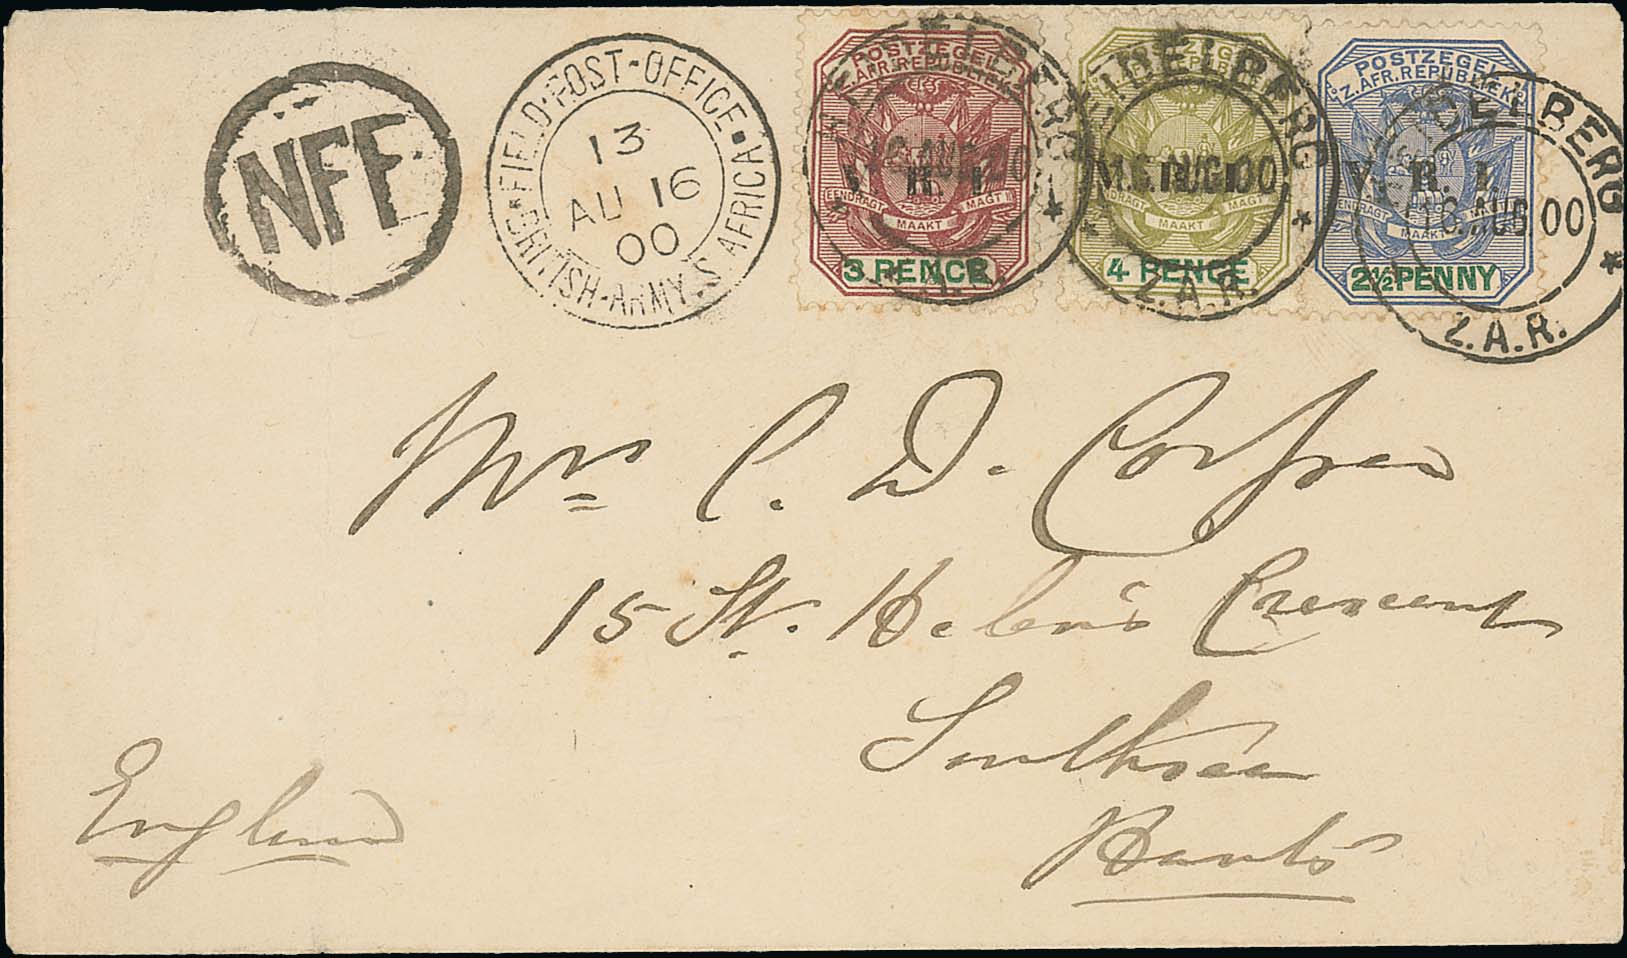 NFF
FIELD·POST-OFFICE·
BRITISH·ARMY·S.AFRICA
13
AU 16
00
POSTZEGEL
Z.AFR.REPUBLIEK
V. R. I.
EENDRAGT MAAKT MAGT
3 PENCE
POSTZEGEL
Z.AFR.REPUBLIEK
EENDRAGT MAAKT MAGT
4 PENCE
POSTZEGEL
Z.AFR.REPUBLIEK
V. R. I.
EENDRAGT MAAKT
2½ PENNY
HEIDELBERG
16.AUG.00
Z.A.R.
HEIDELBERG
16.AUG.00
Z.A.R.
HEIDELBERG
16.AUG.00
Z.A.R.
Mrs C. D. Corfree
15 St. Helen's Crescent
Southsea
Hants
England